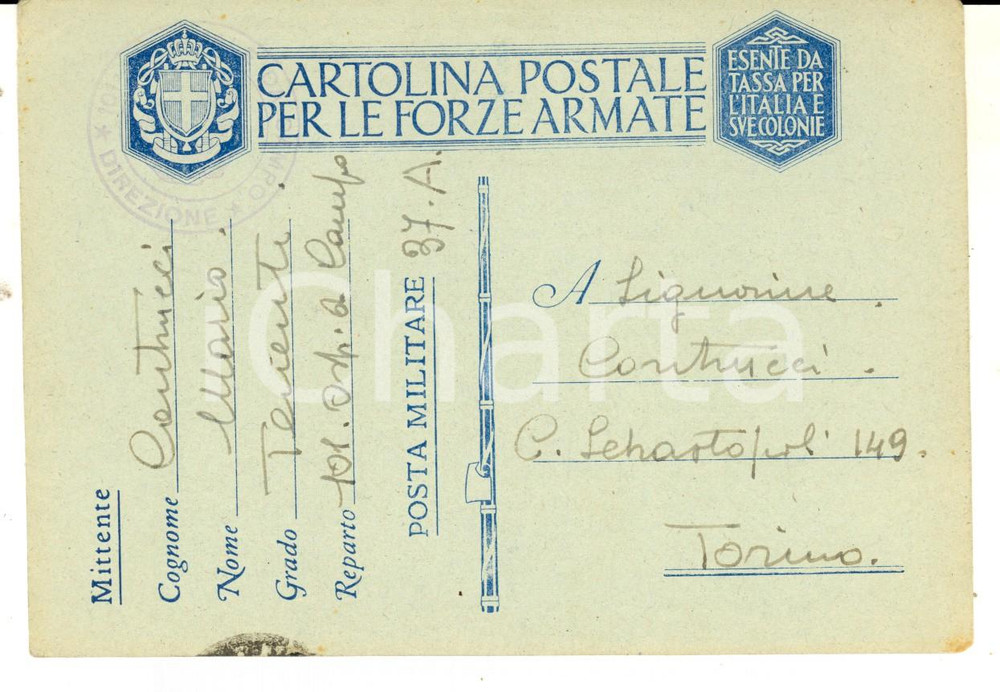 CARTOLINA POSTALE
PER LE FORZE ARMATE
ESENTE DA
TASSA PER
L'ITALIA E
SVE COLONIE
DIREZIONE
Mittente
Cognome Contrucci
Nome Mario.
Grado Tenente
Reparto 101. Osp. da Campo
POSTA MILITARE 37. A.
A Signorine
Contrucci.
C. Sebastopoli 149.
Torino.
iCharta